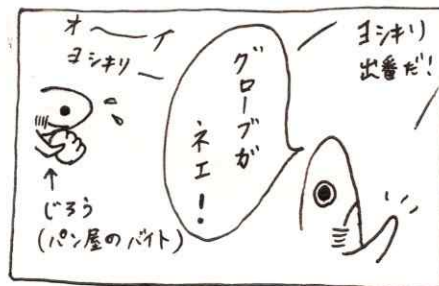 ヨシキリ
出番だ!
グローブが
ネエ!
オ〜〜イ
ヨシキリ〜
↑
じろう
(パン屋のバイト)